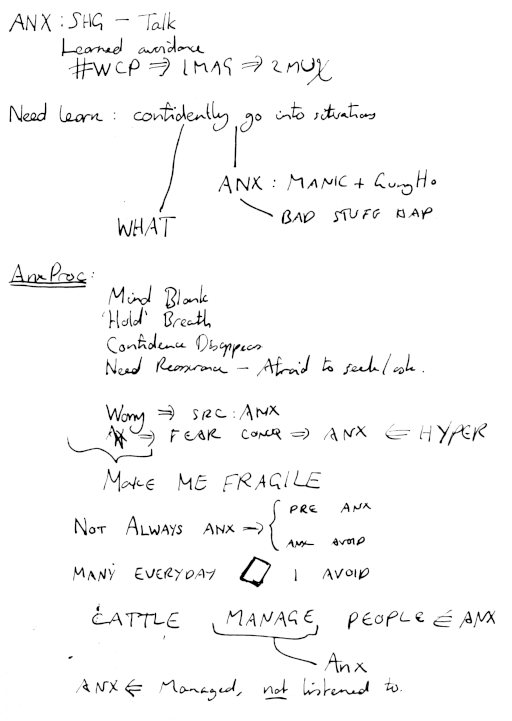 ANX : SHG - Talk
Learned avoidance
#WCP ⇒ IMAG ⇒ 2MUX
Need learn : confidently go into situations
ANX : MANIC + Gung Ho
BAD STUFF HAP
WHAT
Anx Proc :
Mind Blank
'Hold' Breath
Confidence Disappears
Need Reassurance - Afraid to seek/ask.
Worry ⇒ SRC : ANX
⇒ FEAR CONCR ⇒ ANX ⇐ HYPER
MAKE ME FRAGILE
NOT ALWAYS ANX → { PRE ANX
ANX AVOID
MANY EVERYDAY I AVOID
CATTLE MANAGE PEOPLE ⇐ ANX
Anx
ANX ⇐ Managed, not listened to.